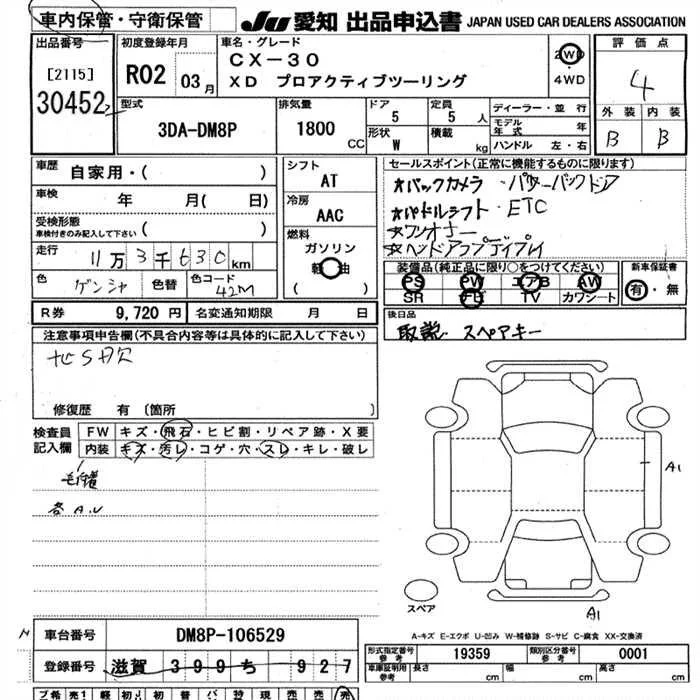 車内保管・守衛保管
JU 愛知 出品申込書 JAPAN USED CAR DEALERS ASSOCIATION
出品番号
[2115]
30452
初度登録年月
R02 03月
車名・グレード
CX-30
XD プロアクティブツーリング
2WD
4WD
評価点
4
外装 内装
B B
型式
3DA-DM8P
排気量
1800 CC
ドア
5
定員
5 人
形状
W
積載
kg
ディーラー・並行
モデル年式 年
ハンドル 左・右
車歴
自家用・( )
車検
年 月( 日)
受検形態
車検付きのみ記入して下さい ( )
走行
11万3千630km
色
ゲンシャ
色替
色コード
42M
シフト
AT
冷房
AAC
燃料
ガソリン
軽油
( )
セールスポイント(正常に機能するものに限ります)
★バックカメラ・パワーバックドア
★パドルシフト・ETC
★ワンオナー
★ヘッドアップディプレイ
装備品(純正品に限り○をつけてください)
PS PW エアB AW
SR ナビ TV カワシート
新車保証書
有・無
R券 9,720 円 名変通知期限 月 日
後日品
取説 スペアキー
注意事項申告欄(不具合内容等は具体的に記入して下さい)
修復歴 有 〔箇所 〕
検査員記入欄
FW キズ・飛石・ヒビ割・リペア跡・X要
内装 キズ・汚レ・コゲ・穴・スレ・キレ・破レ
各 A.U
A1
A1
スペア
A-キズ E-エクボ U-凹み W-補修跡 S-サビ C-腐食 XX-交換済
車台番号 DM8P-106529
登録番号 滋賀 399 ち 927
形式指定番号
参考
19359
類別区分番号
参考
0001
車庫証明用
参考
長さ cm 幅 cm 高さ cm